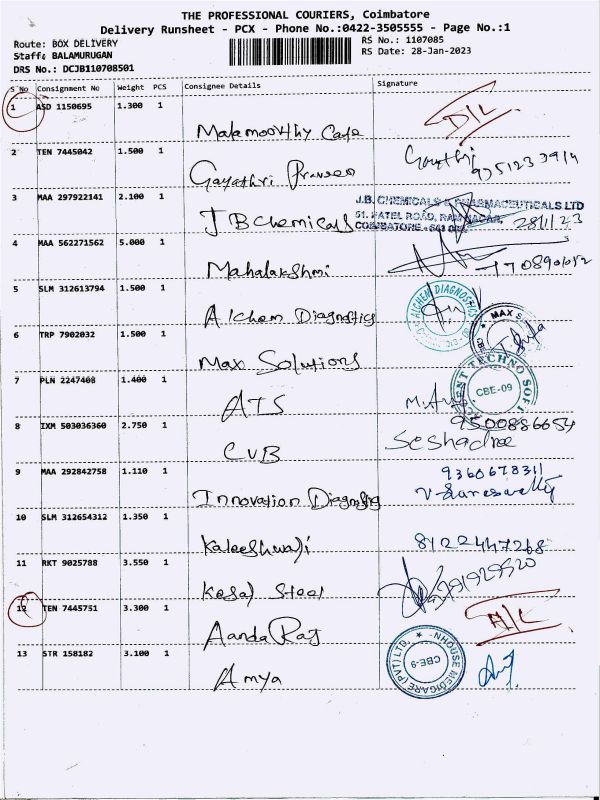 THE PROFESSIONAL COURIERS, Coimbatore
Delivery Runsheet - PCX - Phone No.:0422-3505555 - Page No.:1
Route: BOX DELIVERY
RS No.: 1107085
Staff: BALAMURUGAN
RS Date: 28-Jan-2023
DRS No.: DCJB110708501
S No Consignment No Weight PCS Consignee Details Signature
1 ASD 1150695 1.300 1
D/L
2 TEN 7445042 1.500 1
Gayathri
Gayathri Praveen
3 MAA 297922141 2.100 1
J.B. CHEMICALS & PHARMACEUTICALS LTD
51, PATEL ROAD, RAM NAGAR,
COIMBATORE - 641 009.
28/1/23
JB Chemicals
4 MAA 562271562 5.000 1
Mahalakshmi
5 SLM 312613794 1.500 1
ALCHEM DIAGNOSTICS
Alchem Diagnostics
6 TRP 7902032 1.500 1
MAX
Max Solutions
7 PLN 2247408 1.400 1
TECHNO SOFT
CBE-09
ATS
8 IXM 503036360 2.750 1
9500886654
Seshadree
CUB
9 MAA 292842758 1.110 1
9360678311
Innovation Diagnostics
10 SLM 312654312 1.350 1
8122447268
Kaleeshwari
11 RKT 9025788 3.550 1
Steel
12 TEN 7445751 3.300 1
Aanda Raj
13 STR 158182 3.100 1
NHOUSE MEDICARE (PVT) LTD.
CBE-9
Amya